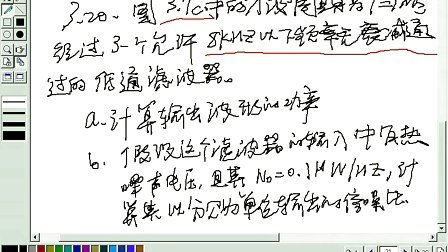 3.20. 图3.1c中的
经过了一个允许8KHZ以下频率无衰减通
过的低通滤波器。
a. 计算输出波形的功率
b. 假设这个滤波器的输入中有热
噪声电压,且其N₀=0.1μW/HZ,计
算其以分贝为单位输出的信噪比